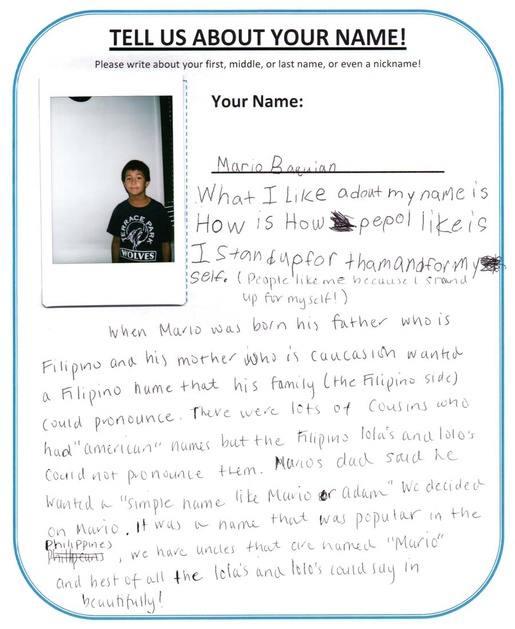 TELL US ABOUT YOUR NAME!
Please write about your first, middle, or last name, or even a nickname!
Your Name:
Mario Baquian
TERRACE PARK
WOLVES
What I Like adout my name is
How is How pepol like is
I standup for thamandformy
self. (People like me because I stand
up for myself!)
When Mario was born his father who is
Filipino and his mother who is caucasion wanted
a Filipino name that his family (the Filipino side)
could pronounce. There were lots of cousins who
had "american" names but the Filipino lola's and lolo's
could not pronounce them. Mario's dad said he
wanted a "simple name like Mario or Adam" We decided
on Mario. It was a name that was popular in the
Philippines
, we have uncles that are named "Mario"
and best of all the lola's and lolo's could say in
beautifully!